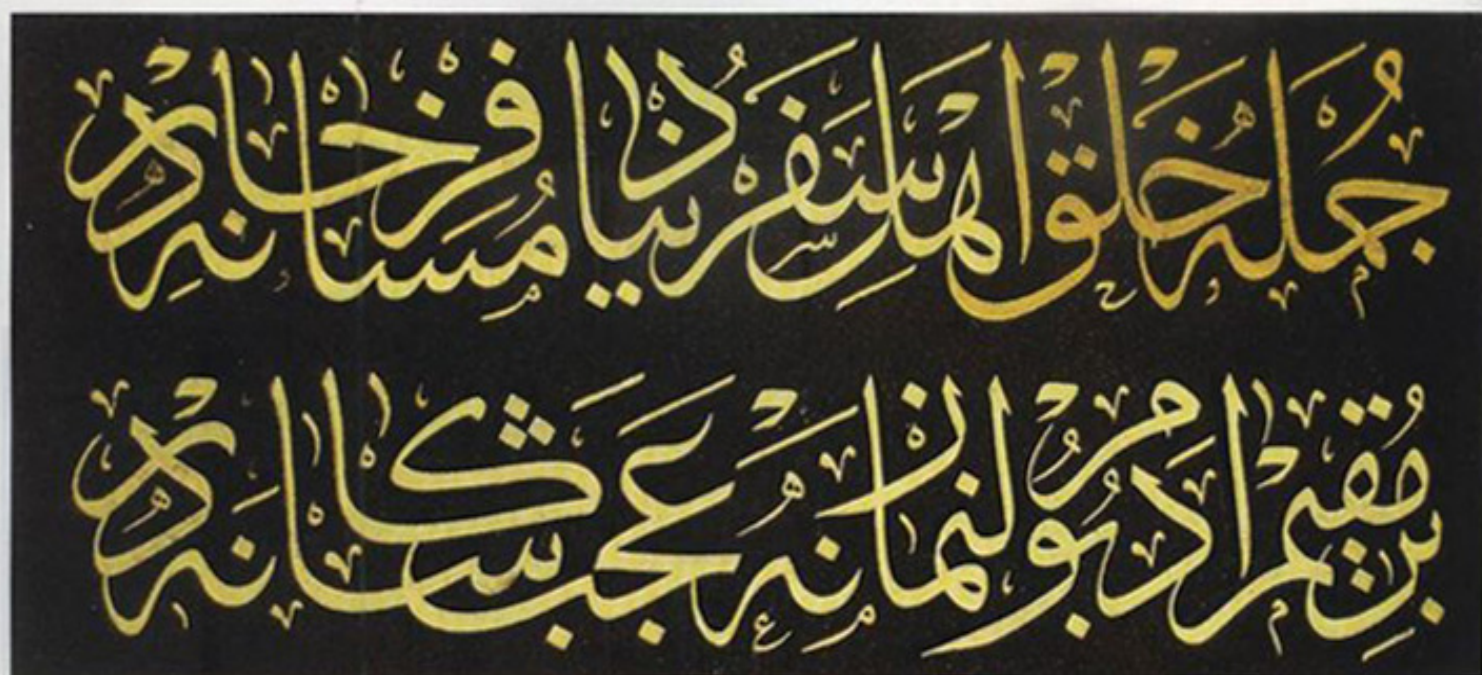 جمله خلق اهل سفر دنیا مسافرخانه در
بر مقیم ادم بولنماز نه عجب كاشانه در